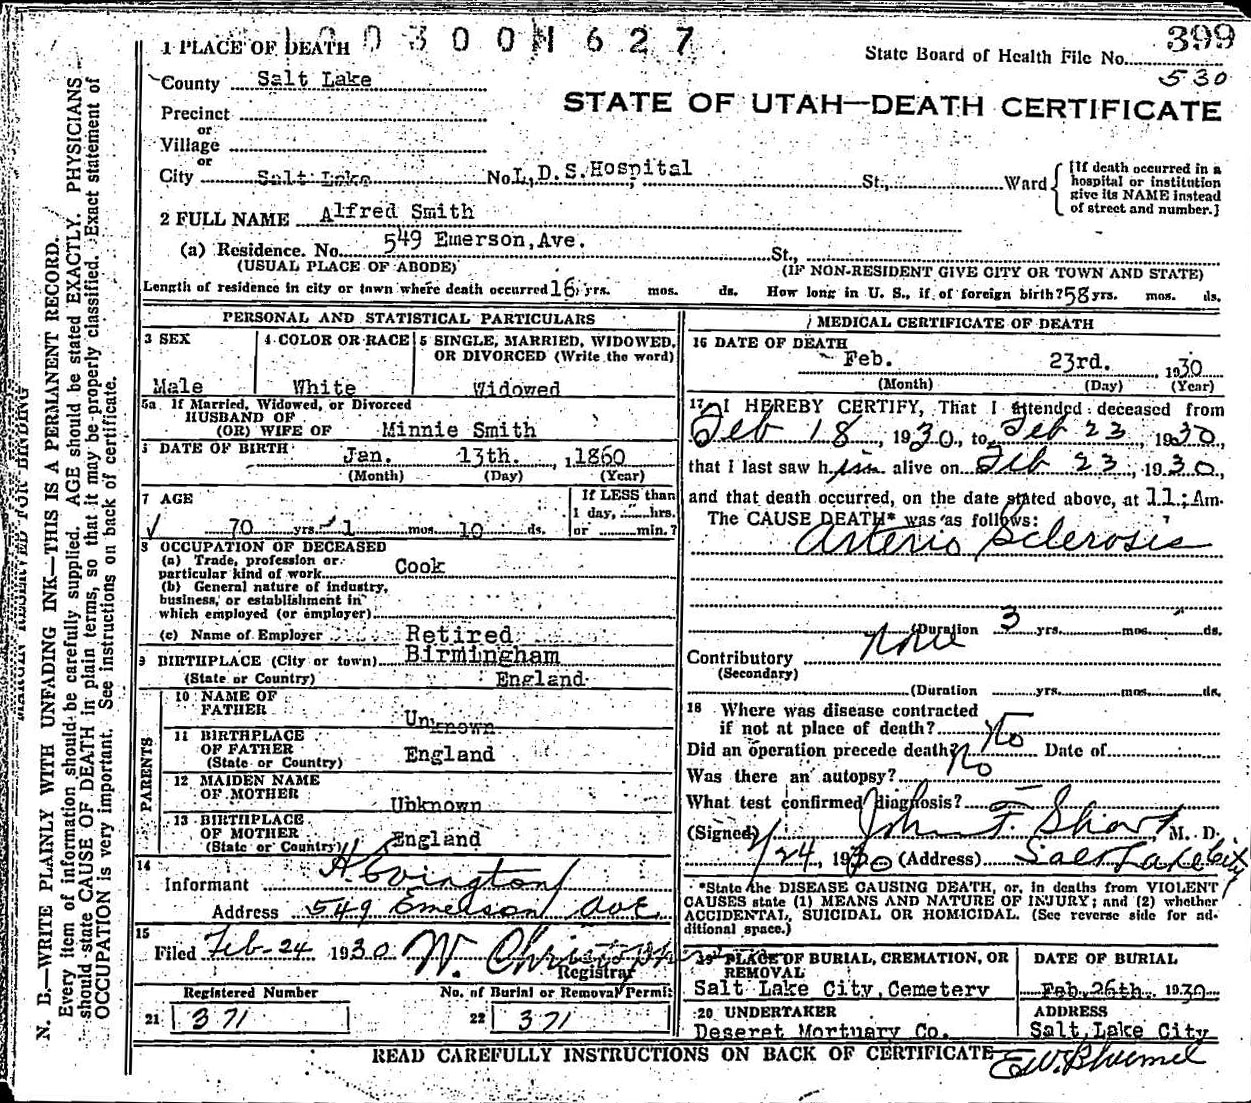 1 PLACE OF DEATH
0 3 0 0 1 6 2 7
399
State Board of Health File No.
530
County Salt Lake
STATE OF UTAH—DEATH CERTIFICATE
Precinct
or
Village
or
City Salt Lake No. L.D.S. Hospital St., Ward
[If death occurred in a hospital or institution give its NAME instead of street and number.]
2 FULL NAME Alfred Smith
(a) Residence. No. 549 Emerson, Ave. St.,
(USUAL PLACE OF ABODE) (IF NON-RESIDENT GIVE CITY OR TOWN AND STATE)
Length of residence in city or town where death occurred 16 yrs. mos. ds. How long in U. S., if of foreign birth? 58 yrs. mos. ds.
PERSONAL AND STATISTICAL PARTICULARS
3 SEX
Male
4 COLOR OR RACE
White
5 SINGLE, MARRIED, WIDOWED, OR DIVORCED (Write the word)
Widowed
5a If Married, Widowed, or Divorced
HUSBAND OF
(OR) WIFE OF Minnie Smith
DATE OF BIRTH
Jan. 13th. , 1860
(Month) (Day) (Year)
7 AGE
70 yrs. 1 mos. 10 ds.
If LESS than
1 day, hrs.
or min.?
8 OCCUPATION OF DECEASED
(a) Trade, profession or
particular kind of work Cook
(b) General nature of industry,
business, or establishment in
which employed (or employer)
(c) Name of Employer Retired
9 BIRTHPLACE (City or town) Birmingham
(State or Country) England
PARENTS
10 NAME OF
FATHER
Unknown
11 BIRTHPLACE
OF FATHER
(State or Country) England
12 MAIDEN NAME
OF MOTHER
Unknown
13 BIRTHPLACE
OF MOTHER
(State or Country) England
14
Informant H Covington
Address 549 Emerson Ave.
15
Filed Feb-24 1930 W. Christy
Registrar
Registered Number
21 371
No. of Burial or Removal Permit
22 371
MEDICAL CERTIFICATE OF DEATH
16 DATE OF DEATH
Feb. 23rd. 1930
(Month) (Day) (Year)
17 I HEREBY CERTIFY, That I attended deceased from
Feb 18, 1930, to Feb 23, 1930,
that I last saw him alive on Feb 23, 1930,
and that death occurred, on the date stated above, at 11:Am.
The CAUSE DEATH* was as follows:
Arterio Sclerosis
(Duration 3 yrs. mos. ds.
Contributory None
(Secondary)
(Duration yrs. mos. ds.
18 Where was disease contracted
if not at place of death?
No
Did an operation precede death? No Date of
Was there an autopsy?
What test confirmed diagnosis?
(Signed) John F. Sharp M. D.
2/24, 1930 (Address) Salt Lake City
*State the DISEASE CAUSING DEATH, or, in deaths from VIOLENT
CAUSES state (1) MEANS AND NATURE OF INJURY; and (2) whether
ACCIDENTAL, SUICIDAL OR HOMICIDAL. (See reverse side for ad-
ditional space.)
19 PLACE OF BURIAL, CREMATION, OR
REMOVAL
Salt Lake City, Cemetery
DATE OF BURIAL
Feb. 26th. 1930
20 UNDERTAKER
Deseret Mortuary Co.
ADDRESS
Salt Lake City
READ CAREFULLY INSTRUCTIONS ON BACK OF CERTIFICATE
MARGIN RESERVED FOR BINDING
N. B.—WRITE PLAINLY WITH UNFADING INK—THIS IS A PERMANENT RECORD.
Every item of information should be carefully supplied. AGE should be stated EXACTLY. PHYSICIANS
should state CAUSE OF DEATH in plain terms, so that it may be properly classified. Exact statement of
OCCUPATION is very important. See instructions on back of certificate.